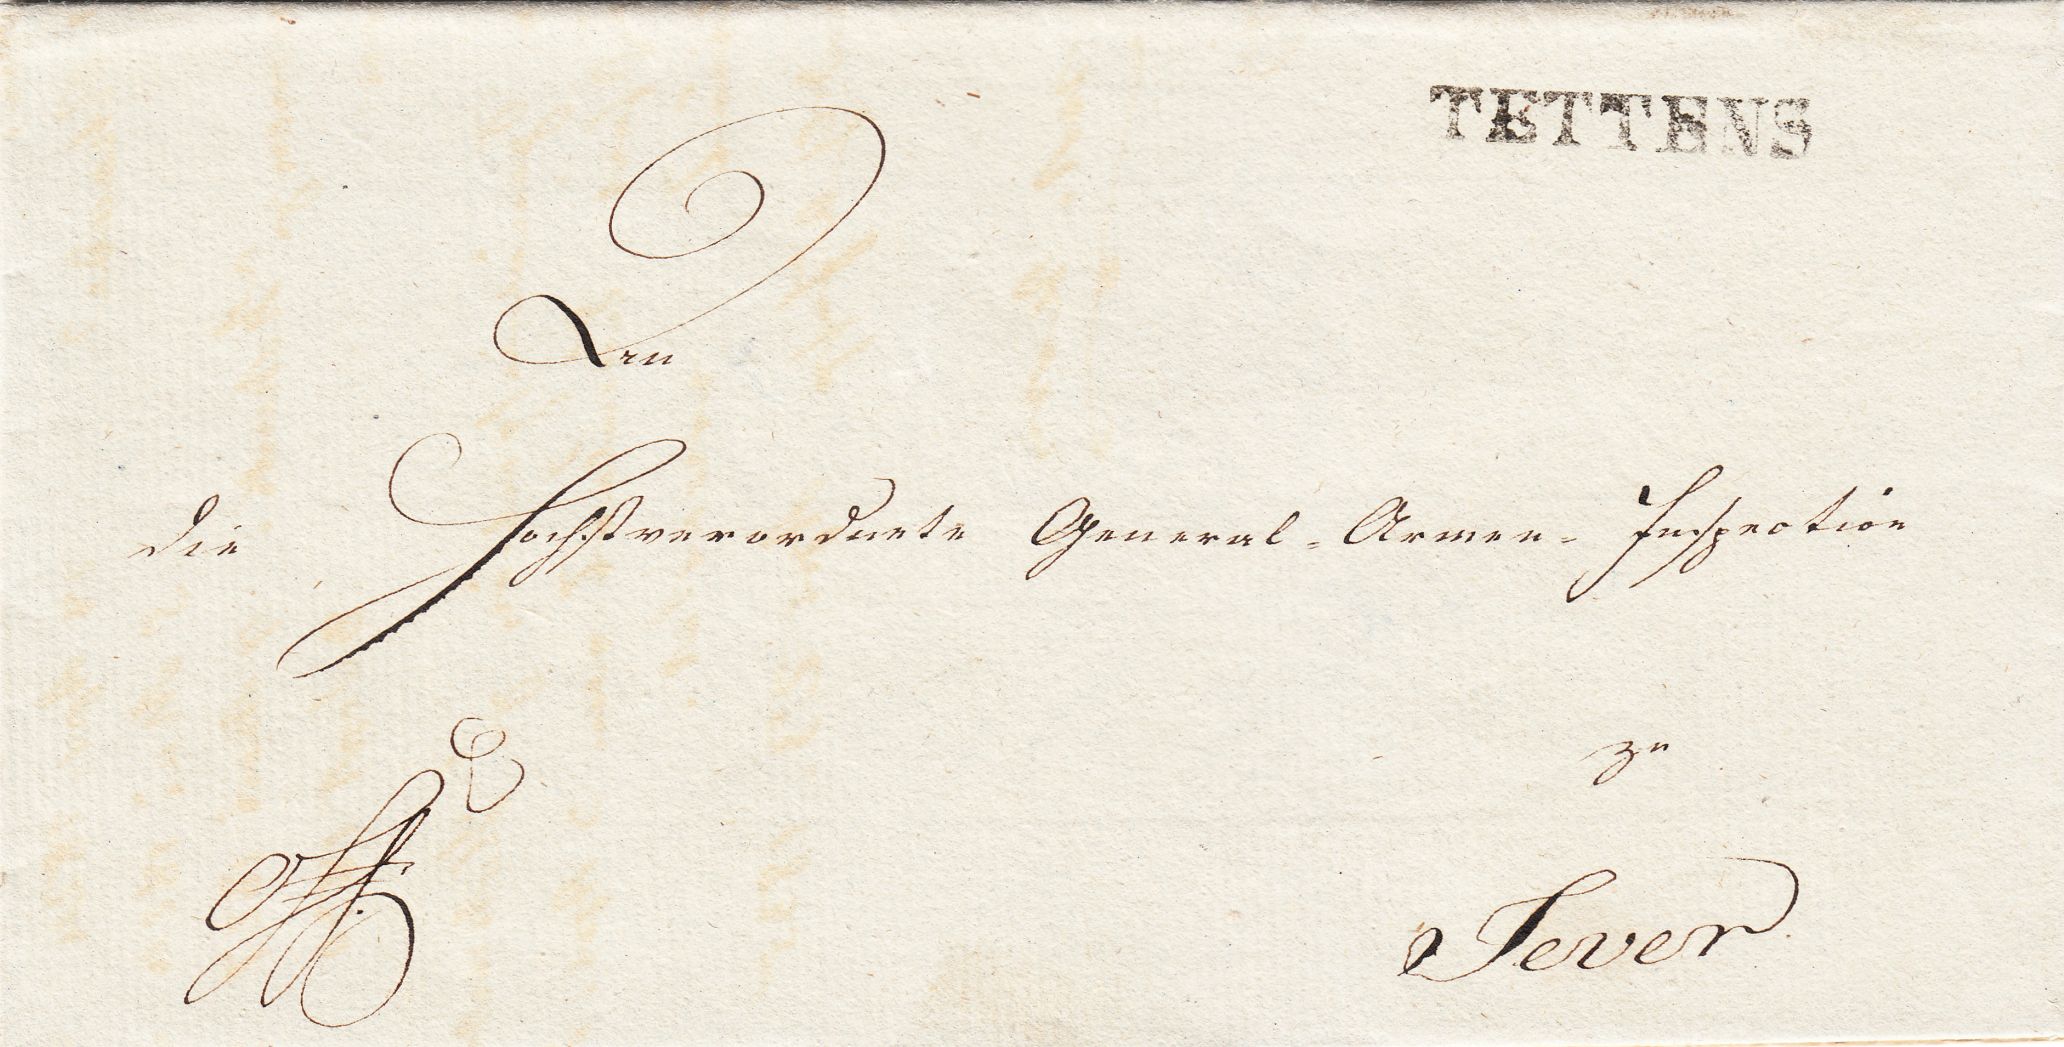 TETTENS
An
die Hochstverordnete General-Armen-Inspection
zu
Jever